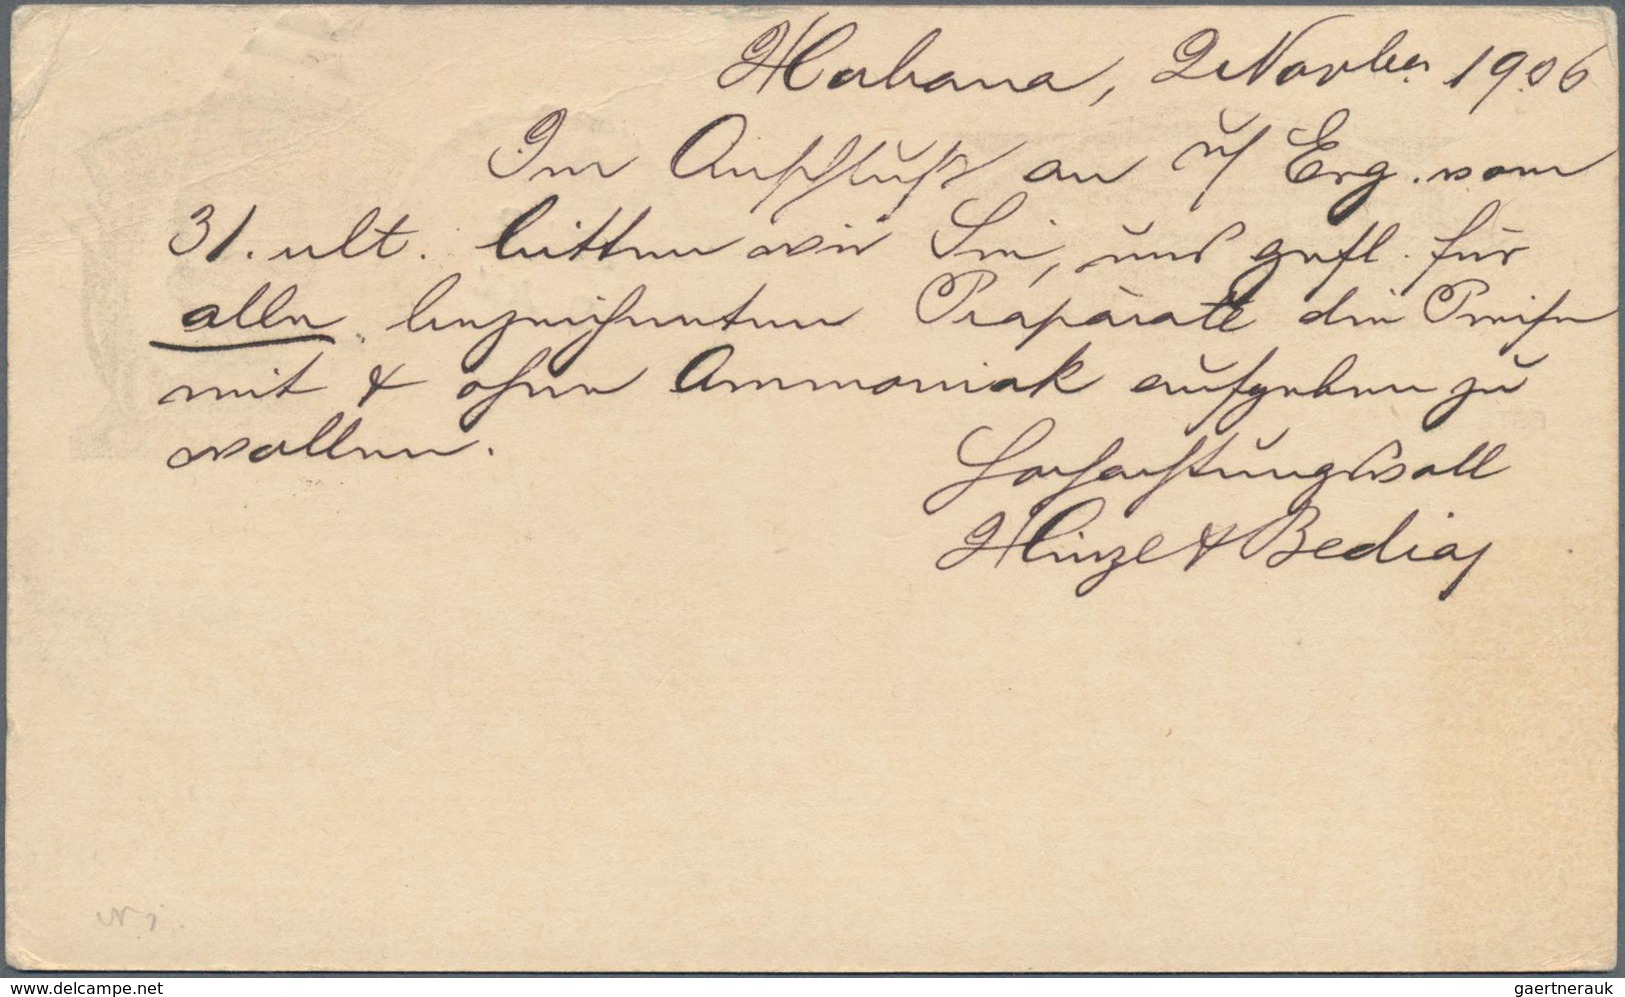 Habana, 2 Novber 1906
Im Anschluß an u/ Erg. vom
31. ult. bitten wir Sie, uns gefl. für
alle bezeichneten Präparate die Preise
mit & ohne Ammoniak aufgeben zu
wollen.
Hochachtungsvoll
Hinze & Bedia
gaertnerauk
www.delcampe.net